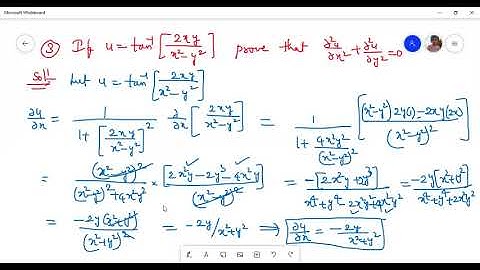 Microsoft Whiteboard
③ If u = tan⁻¹[2xy / x²-y²] prove that ∂²u/∂x² + ∂²u/∂y² = 0
Sol! Let u = tan⁻¹[2xy / x²-y²]
∂u/∂x = 1 / 1+[2xy / x²-y²]² ∂/∂x [2xy / x²-y²] = 1 / 1+ 4x²y² / (x²-y²)² [(x²-y²) 2y(1) - 2xy(2x) / (x²-y²)²]
= (x²-y²)² / (x²-y²)²+4x²y² × [2x²y - 2y³ - 4x²y] / (x²-y²)² = -[2x²y + 2y³] / x⁴+y⁴-2x²y²+4x²y² = -2y[x²+y²] / x⁴+y⁴+2x²y²
= -2y(x²+y²) / (x²+y²)² = -2y/x²+y² ⇒ ∂u/∂x = -2y / x²+y²